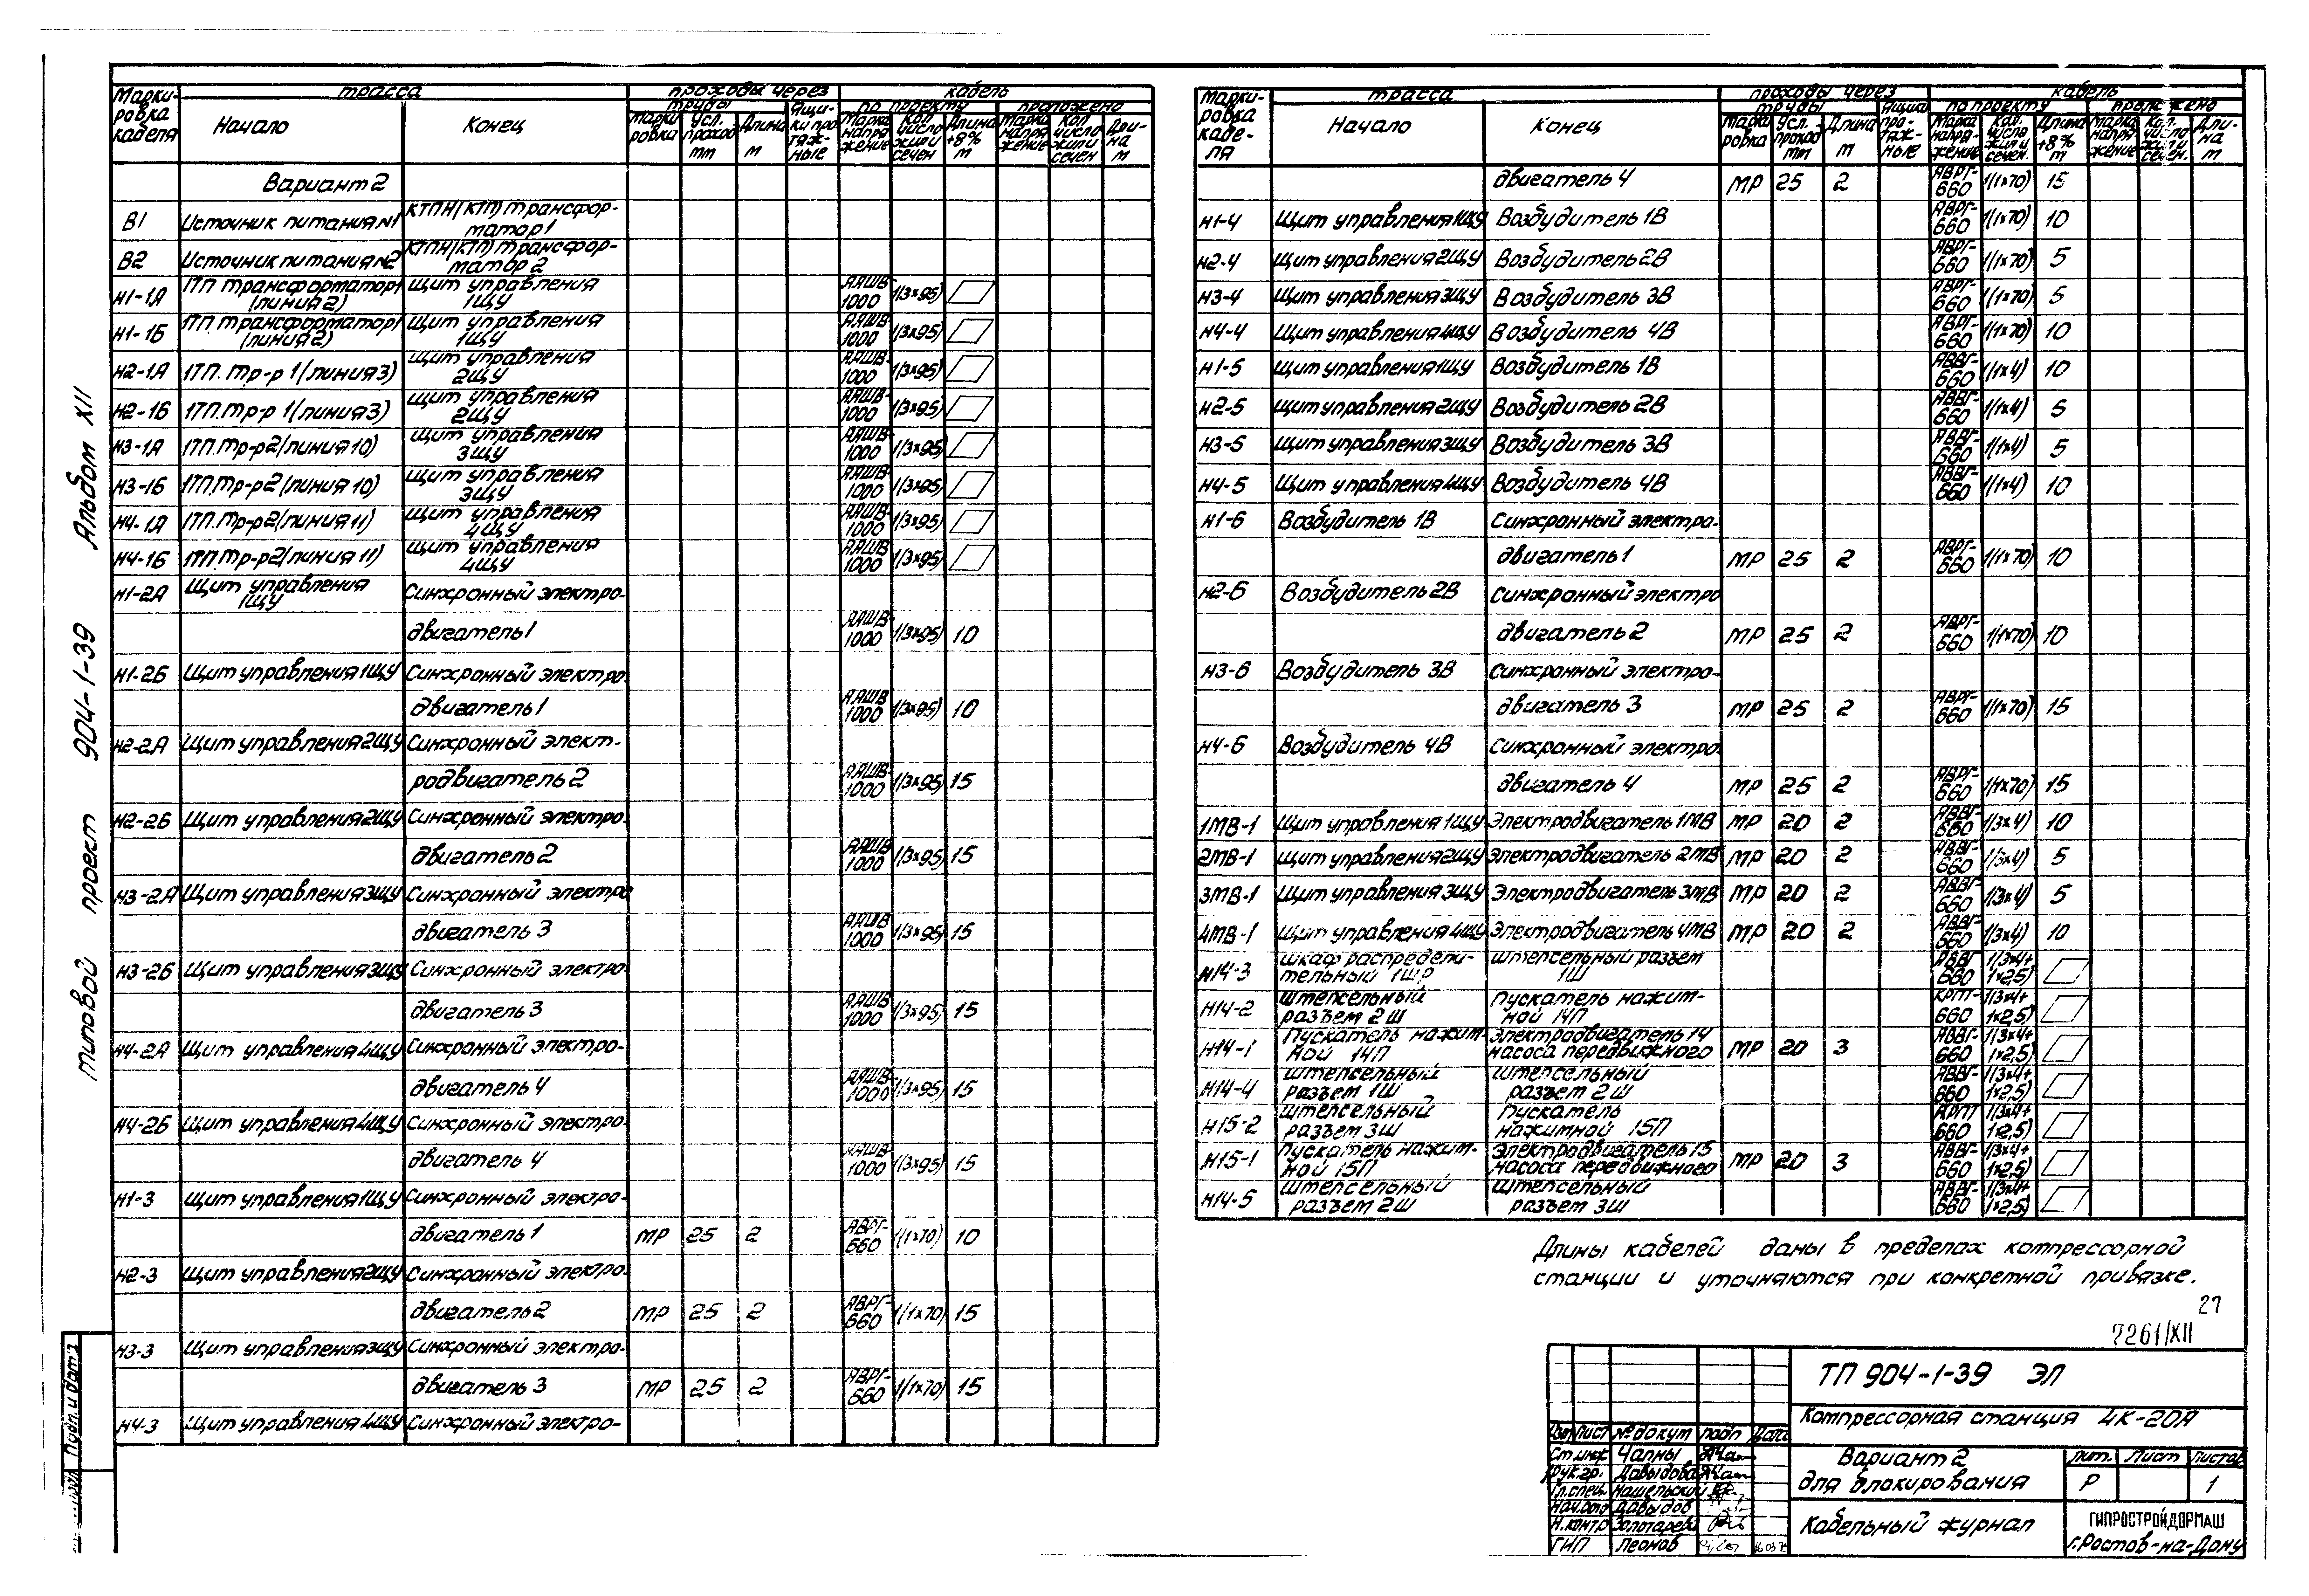 Альбом XII
типовой проект 904-1-39
Подп. и дата
Марки-ровка кабеля | трасса | проходы через | кабель
трубы | Ящи-ки про-тяж-ные | по проекту | проложено
Начало | Конец | Марки ровки | Усл. проход мм | Длина м | Марка напря жение | Кол. число жил и сечен | Длина +8% м | Марка напря жение | Кол число жил и сечен | Дли-на м
Вариант 2
В1 Источник питания №1 КТПН(КТП) трансфор-матор 1
В2 Источник питания №2 КТПН(КТП) трансфор-матор 2
Н1-1А 1ТП трансформатор 1 (линия 2) Щит управления 1ЩУ ААШВ-1000 1(3×95)
Н1-1Б 1ТП трансформатор 1 (линия 2) Щит управления 1ЩУ ААШВ-1000 1(3×95)
Н2-1А 1ТП. тр-р 1 (линия 3) щит управления 2ЩУ ААШВ-1000 1(3×95)
Н2-1Б 1ТП. тр-р 1 (линия 3) щит управления 2ЩУ ААШВ-1000 1(3×95)
Н3-1А 1ТП. тр-р 2 (линия 10) щит управления 3ЩУ ААШВ-1000 1(3×95)
Н3-1Б 1ТП. тр-р 2 (линия 10) щит управления 3ЩУ ААШВ-1000 1(3×95)
Н4-1А 1ТП. тр-р 2 (линия 11) щит управления 4ЩУ ААШВ-1000 1(3×95)
Н4-1Б 1ТП. тр-р 2 (линия 11) щит управления 4ЩУ ААШВ-1000 1(3×95)
Н1-2А Щит управления 1ЩУ Синхронный электро-
двигатель 1 ААШВ-1000 1(3×95) 10
Н1-2Б Щит управления 1ЩУ Синхронный электро
двигатель 1 ААШВ-1000 1(3×95) 10
Н2-2А Щит управления 2ЩУ Синхронный элект-
родвигатель 2 ААШВ-1000 1(3×95) 15
Н2-2Б Щит управления 2ЩУ Синхронный электро-
двигатель 2 ААШВ-1000 1(3×95) 15
Н3-2А Щит управления 3ЩУ Синхронный электро
двигатель 3 ААШВ-1000 1(3×95) 15
Н3-2Б Щит управления 3ЩУ Синхронный электро-
двигатель 3 ААШВ-1000 1(3×95) 15
Н4-2А Щит управления 4ЩУ Синхронный электро-
двигатель 4 ААШВ-1000 1(3×95) 15
Н4-2Б Щит управления 4ЩУ Синхронный электро-
двигатель 4 ААШВ-1000 1(3×95) 15
Н1-3 Щит управления 1ЩУ Синхронный электро-
двигатель 1 МР 25 2 АВРГ-660 1(1×70) 10
Н2-3 Щит управления 2ЩУ Синхронный электро-
двигатель 2 МР 25 2 АВРГ-660 1(1×70) 15
Н3-3 Щит управления 3ЩУ Синхронный электро-
двигатель 3 МР 25 2 АВРГ-660 1(1×70) 15
Н4-3 Щит управления 4ЩУ Синхронный электро-
Марки-ровка кабе-ля | трасса | проходы через | кабель
трубы | Ящики про-тяж-ные | по проекту | проложено
Начало | Конец | Марки ровка | Усл. проход мм | Длина м | Марка напря-жение | Кол. число жил и сечен. | Длина +8% м | Марка напря жение | Кол. число жил и сечен. | Дли-на м
двигатель 4 МР 25 2 АВРГ-660 1(1×70) 15
Н1-4 Щит управления 1ЩУ Возбудитель 1В АВРГ-660 1(1×70) 10
Н2-4 Щит управления 2ЩУ Возбудитель 2В АВРГ-660 1(1×70) 5
Н3-4 Щит управления 3ЩУ Возбудитель 3В АВРГ-660 1(1×70) 5
Н4-4 Щит управления 4ЩУ Возбудитель 4В АВРГ-660 1(1×70) 10
Н1-5 Щит управления 1ЩУ Возбудитель 1В АВВГ-660 1(1×4) 10
Н2-5 Щит управления 2ЩУ Возбудитель 2В АВВГ-660 1(1×4) 5
Н3-5 Щит управления 3ЩУ Возбудитель 3В АВВГ-660 1(1×4) 5
Н4-5 Щит управления 4ЩУ Возбудитель 4В АВВГ-660 1(1×4) 10
Н1-6 Возбудитель 1В Синхронный электро-
двигатель 1 МР 25 2 АВРГ-660 1(1×70) 10
Н2-6 Возбудитель 2В Синхронный электро
двигатель 2 МР 25 2 АВРГ-660 1(1×70) 10
Н3-6 Возбудитель 3В Синхронный электро-
двигатель 3 МР 25 2 АВРГ-660 1(1×70) 15
Н4-6 Возбудитель 4В Синхронный электро-
двигатель 4 МР 25 2 АВРГ-660 1(1×70) 15
1МВ-1 Щит управления 1ЩУ Электродвигатель 1МВ МР 20 2 АВВГ-660 1(3×4) 10
2МВ-1 Щит управления 2ЩУ Электродвигатель 2МВ МР 20 2 АВВГ-660 1(3×4) 5
3МВ-1 Щит управления 3ЩУ Электродвигатель 3МВ МР 20 2 АВВГ-660 1(3×4) 5
4МВ-1 Щит управления 4ЩУ Электродвигатель 4МВ МР 20 2 АВВГ-660 1(3×4) 10
Н14-3 Шкаф распредели-тельный 1ШР Штепсельный разъем 1Ш АВВГ-660 1(3×4+1×2,5)
Н14-2 Штепсельный разъем 2Ш Пускатель нажим-ной 14П КРПТ-660 1(3×4+1×2,5)
Н14-1 Пускатель нажим-ной 14П Электродвигатель 14 насоса передвижного МР 20 3 АВВГ-660 1(3×4+1×2,5)
Н14-4 Штепсельный разъем 1Ш Штепсельный разъем 2Ш АВВГ-660 1(3×4+1×2,5)
Н15-2 Штепсельный разъем 3Ш Пускатель нажимной 15П КРПТ 660 1(3×4+1×2,5)
Н15-1 Пускатель нажим-ной 15П Электродвигатель 15 насоса передвижного МР 20 3 АВВГ-660 1(3×4+1×2,5)
Н14-5 Штепсельный разъем 2Ш Штепсельный разъем 3Ш АВВГ-660 1(3×4+1×2,5)
Длины кабелей даны в пределах компрессорной
станции и уточняются при конкретной привязке.
27
7261/XII
ТП 904-1-39 ЭЛ
Компрессорная станция 4К-20А
Изм Лист № докум Подп Дата
Ст. инж Чапны
Рук. гр. Давыдова
Гл. спец. Нашельский
Нач. отд Давыдов
Н. контр Золотарев
ГИП Леонов
Вариант 2
для блокирования
Лит. Лист Листов
Р 1
Кабельный журнал
ГИПРОСТРОЙДОРМАШ
г. Ростов-на-Дону